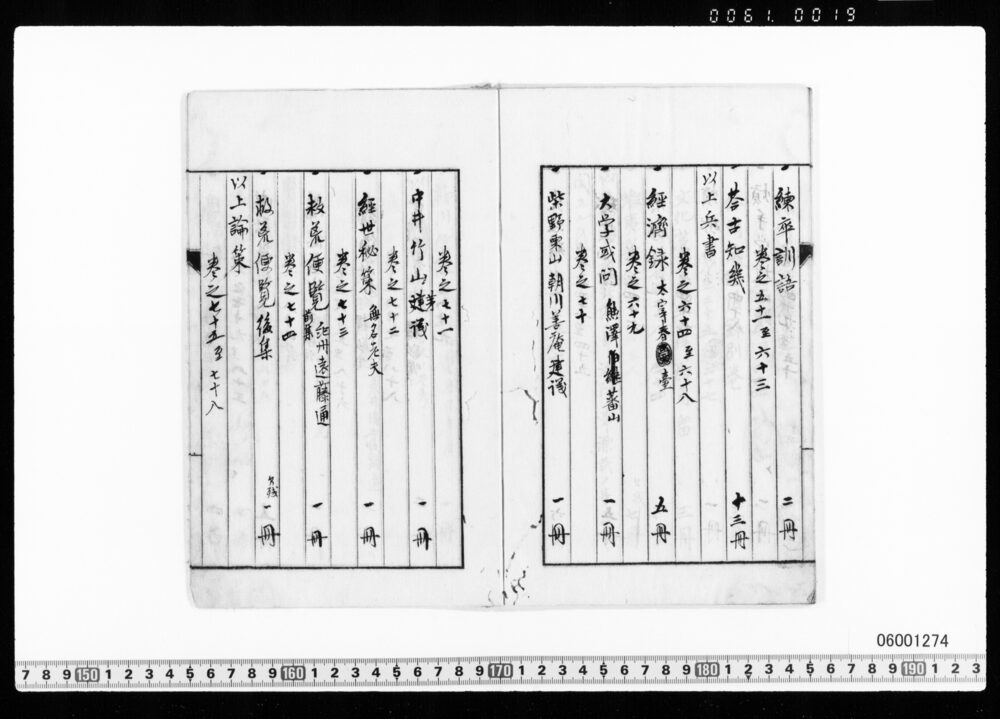 0061.0019
練卒訓語 二冊
巻之五十一至六十三
荅古知幾 十三冊
以上兵書
巻之六十四至六十八
經濟録 太宰春臺 五冊
巻之六十九
大学或問 熊澤伯継蕃山 一冊
巻之七十
柴野栗山 朝川善菴建議 一冊
巻之七十一
中井竹山建議 一冊
巻之七十二
經世秘策 無名老夫 一冊
巻之七十三
救荒便覧 前集 紀州遠藤通 一冊
巻之七十四
救荒便覧後集 一冊
以上論策
巻之七十五至七十八
06001274
7 8 9 150 1 2 3 4 5 6 7 8 9 160 1 2 3 4 5 6 7 8 9 170 1 2 3 4 5 6 7 8 9 180 1 2 3 4 5 6 7 8 9 190 1 2 3